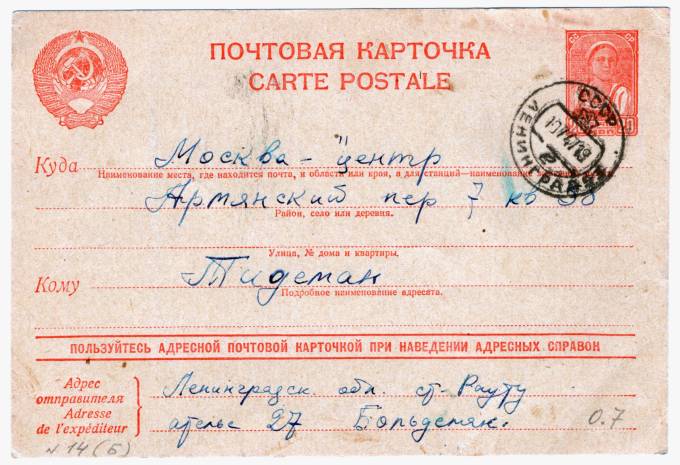 ПОЧТОВАЯ КАРТОЧКА
CARTE POSTALE
СССР
ЛЕНИНГРАД
Куда Москва - Центр
Наименование места, где находится почта, и области или края, а для станций—наименование
Армянский пер 7 кв
Район, село или деревня.
Улица, № дома и квартиры.
Кому Тидеман
Подробное наименование адресата.
ПОЛЬЗУЙТЕСЬ АДРЕСНОЙ ПОЧТОВОЙ КАРТОЧКОЙ ПРИ НАВЕДЕНИИ АДРЕСНЫХ СПРАВОК
Адрес отправителя
Adresse de l'expéditeur
Ленинградск. обл. ст. Рауту
ателье 27
0.7
№ 14 (Б)